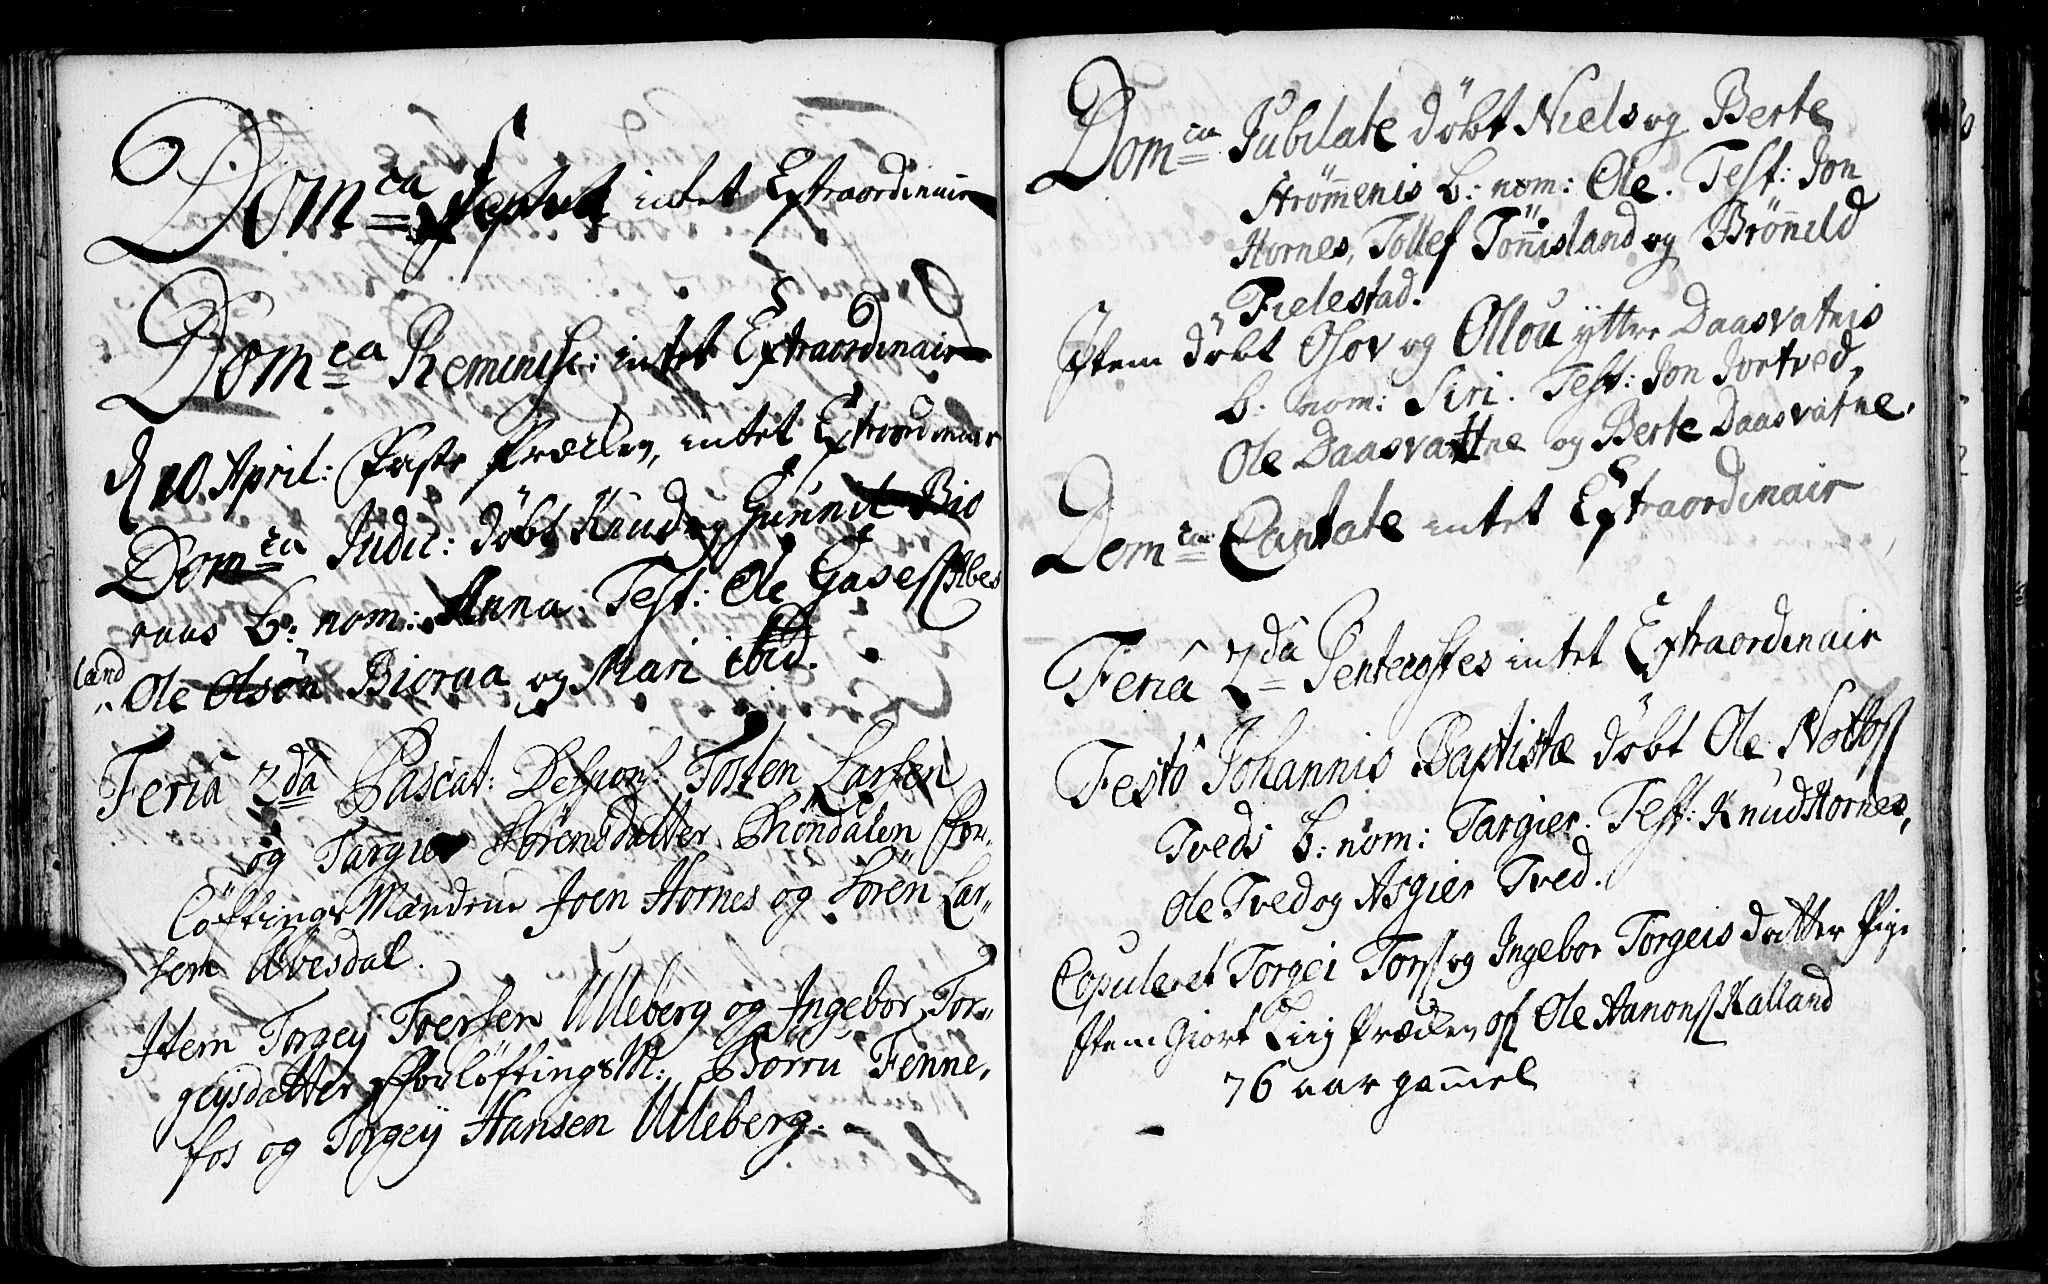 Dom:ca intet Extraordinair
Dom:ca Reminisc: intet Extraordinair
d 10 April: intet Extraordinair
Dom:ca Judic: döbt Knud og Gunnil Bio
raas b: nom: Anna. Test: Ole Gaseflaae
land
Ole Olsön Bioraa og Mari ibid.
Feria 2da Pascat: Despons: Tosten Larsen
og Targier Sörensdatter Röndalen For-
löftings Mændene Joen Hornes og Sören Lar-
sen Uvesdal.
Item Torgey Toersen Ulleberg og Ingebor Tor-
geysdatter Forlöftings M: Borru Fenne-
fos og Torgey Hansen Ulleberg.
Dom:ca Jubilate döbt Niels og Berte
Strömmenis b: nom: Ole. Test: Jon
Hornes, Tollef Tönnisland og Brönnild
Fielestad.
Item döbt Osov og Ollou yttre Daasvatnis
b: nom: Siri. Test: Jon Jortved,
Ole Daasvattne og Berte Daasvatne.
Dom:ca Cantate intet Extraordinair
Feria 2da Pentecostes intet Extraordinair
Festo Johannis Baptistæ döbt Ole
Tveds b: nom: Targier. Test: Knud Hornes,
Ole Tved og Asgier Tved.
Copuleret Torgei Torss og Ingebor Torgeis datter Pige
Item Giort Liig Prædiken of Ole Aanonss Kalland
76 aar gammel